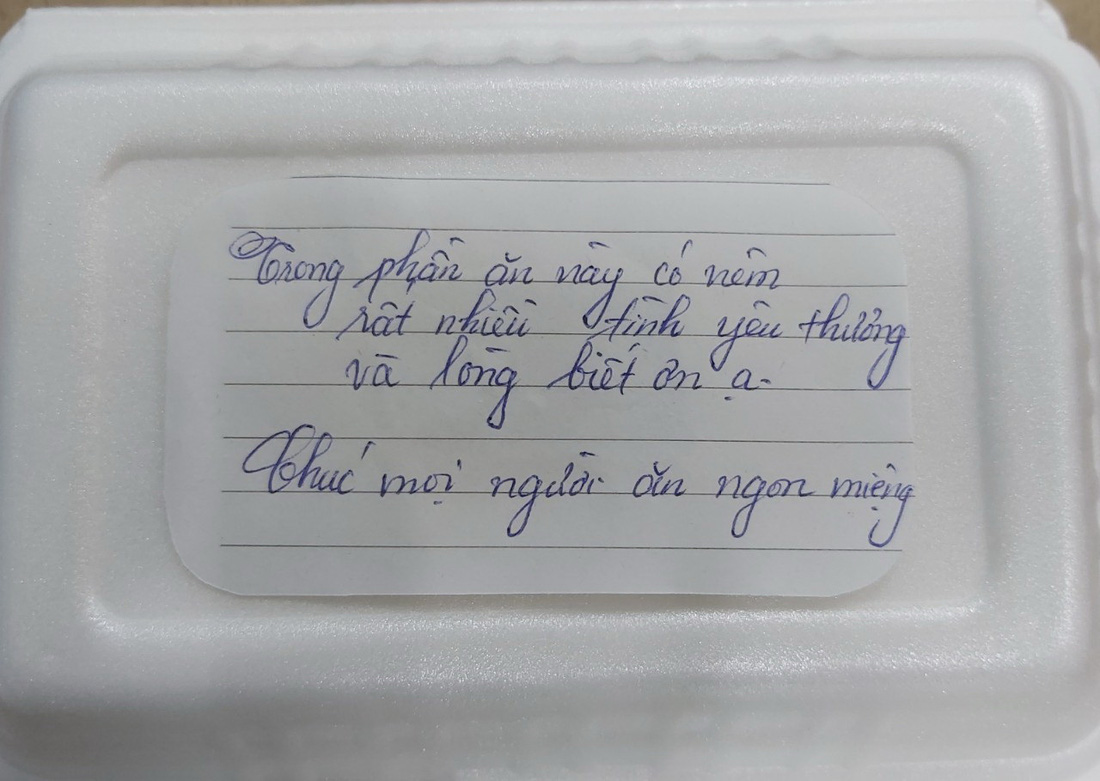 Trong phần ăn này có nêm
rất nhiều tình yêu thương
và lòng biết ơn ạ.
Chúc mọi người ăn ngon miệng